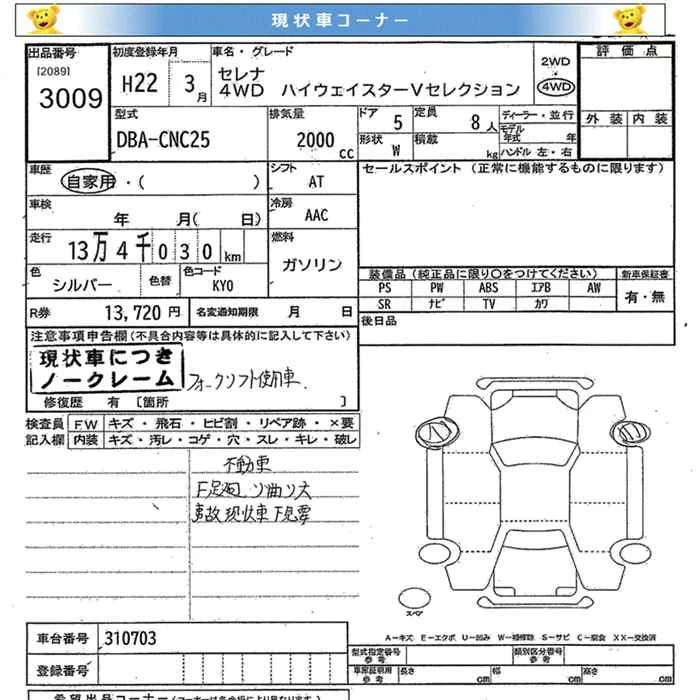 現状車コーナー
出品番号
[2089]
3009
初度登録年月
H22 3月
車名・グレード
セレナ
4WD ハイウェイスターVセレクション
2WD
4WD
評価点
外装 内装
型式
DBA-CNC25
排気量
2000 cc
ドア 5
定員 8人
形状 W
積載 kg
ディーラー・並行
モデル年式 年
ハンドル 左・右
車歴
自家用・( )
シフト
AT
車検
年 月( 日)
冷房
AAC
走行
13万4千030km
燃料
ガソリン
色
シルバー
色替
色コード
KY0
R券 13,720円
名変通知期限 月 日
セールスポイント (正常に機能するものに限ります)
装備品(純正品に限り○をつけてください)
PS PW ABS エアB AW
SR ナビ TV カワ
新車保証書
有・無
後日品
注意事項申告欄(不具合内容等は具体的に記入して下さい)
現状車につき
ノークレーム
フォークリフト使用車
修復歴 有 [箇所 ]
検査員記入欄
FW キズ・飛石・ヒビ割・リペア跡・×要
内装 キズ・汚レ・コゲ・穴・スレ・キレ・破レ
不動車
F足廻 ソ曲ソ大
事故現状車下見要
スペア
A-キズ E-エクボ U-凹み W-補修跡 S-サビ C-腐食 XX-交換済
車台番号 310703
登録番号
型式指定番号 参考
類別区分番号 参考
車庫証明用 参考
長さ cm 幅 cm 高さ cm
希望出品コーナー